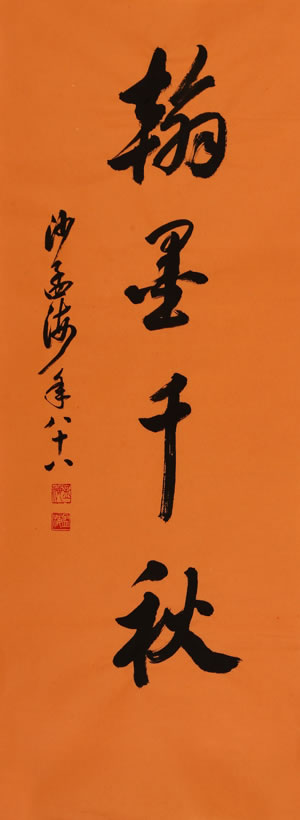 翰墨千秋
沙孟海年八十八